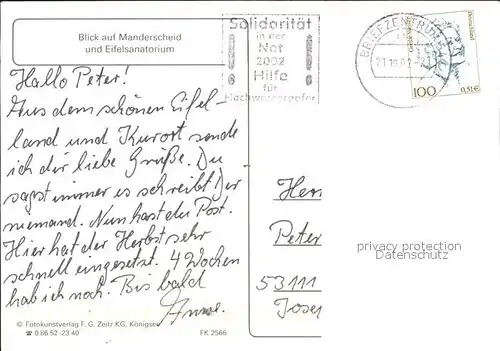 Blick auf Manderscheid
und Eifelsanatorium
Solidarität
in der
Not
2002
Hilfe
für
Hochwasseropfer
BRIEFZENTRUM
Deutschland
100
0,51€
Hallo Peter!
Aus dem schönen Eifel-
land und Kurort sende
ich dir liebe Grüße. Du
sagst immer es schreibt Dir
niemand. Nun hast du Post.
Hier hat der Herbst sehr
schnell eingesetzt. 4 Wochen
hab ich noch. Bis bald
Anne.
Herr
Peter
53111
Josef
privacy protection
Datenschutz
© Fotokunstverlag F. G. Zeitz KG, Königsee
☎ 0 86 52-23 40
FK 2566